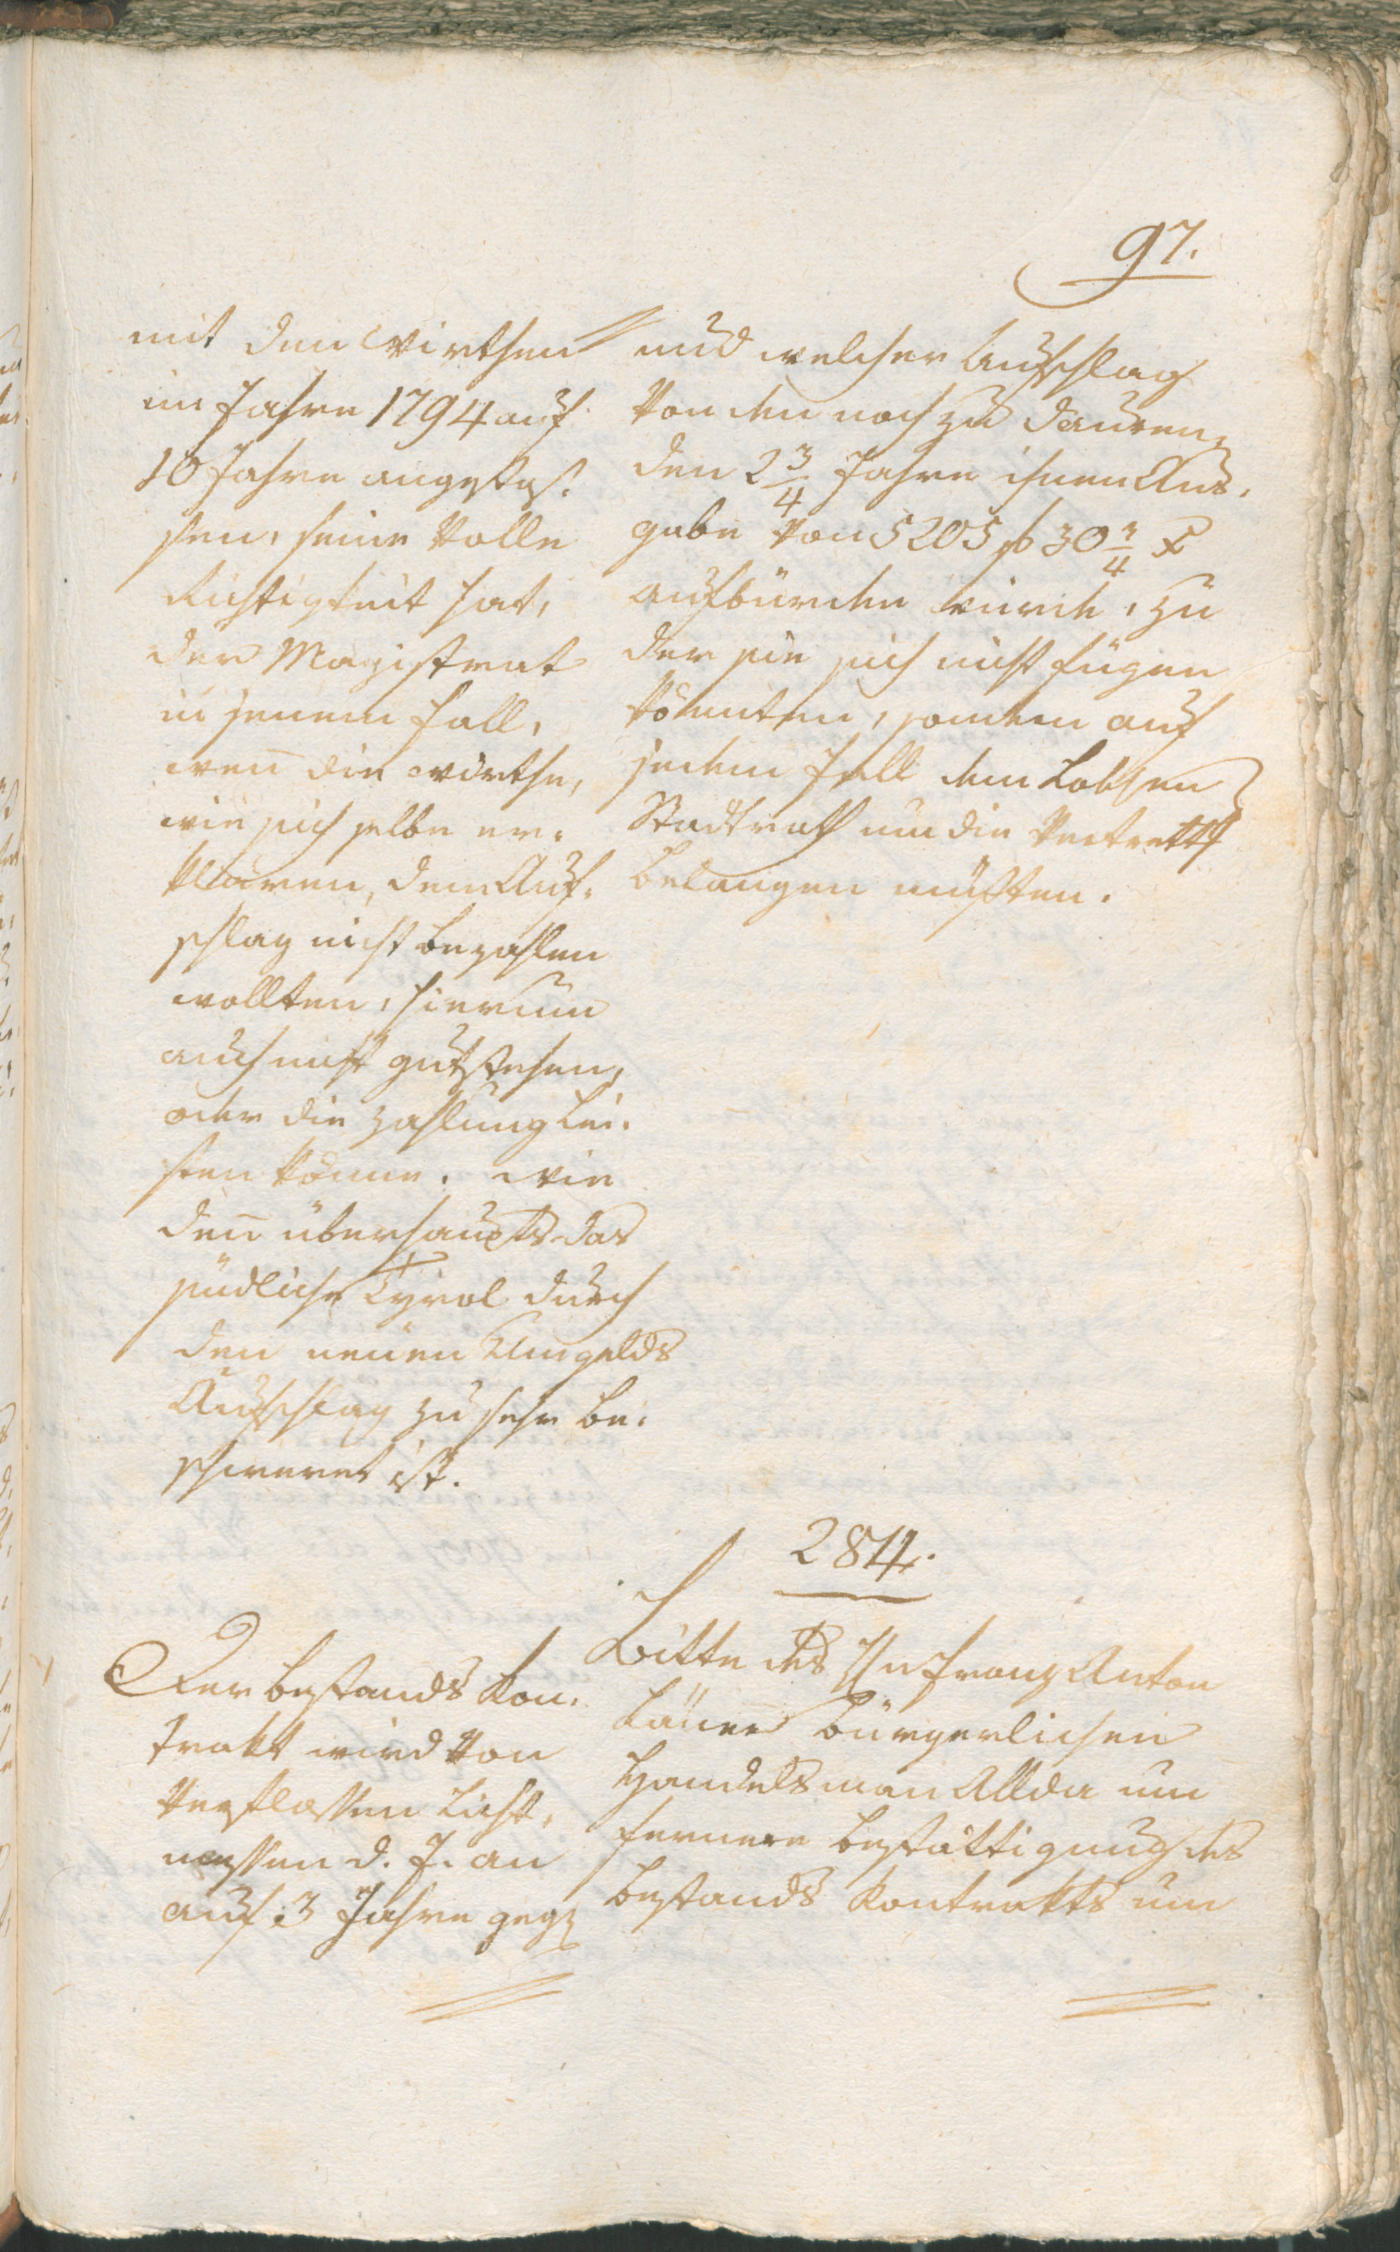 97.
mit den Wirthen
im Jahre 1794 auf
10 Jahre angestoß¬
sen, seine volle
Richtigkeit hat,
der Magistrat
in jenem Fall,
wen̅ die Wirthe,
wie sich selbe er¬
klären, den Auf¬
schlag nicht bezahlen
wollten, hierum
auch nicht gutstehen,
oder die Zahlung lei¬
sten könne. Wie
den̅ überhaupts das
südliche Tyrol durch
den neuen Umgelds
Aufschlag zu sehr be¬
schweret ist.
und welcher Aufschlag
von den noch zu dauren¬
den 2 3/4 Jahre ihnen Aus¬
gabe von 5205 f 30 3/4 x
aufbürden würde, zu
der sie sich nicht fügen
könnten, sondern auf
jeden Fall den Lobhen
Stadtrath um die Vertrettg
belangen müßten.
2814.
Der Bestands Kon¬
trakt wird von
verflossen Licht¬
messen d. J. an
auf 3 Jahre gegen
Bitte des Hn Franz Anton
bürgerlichen
Handelsman Allda um
fernere Bestättigung des
Bestands Kontrakts um